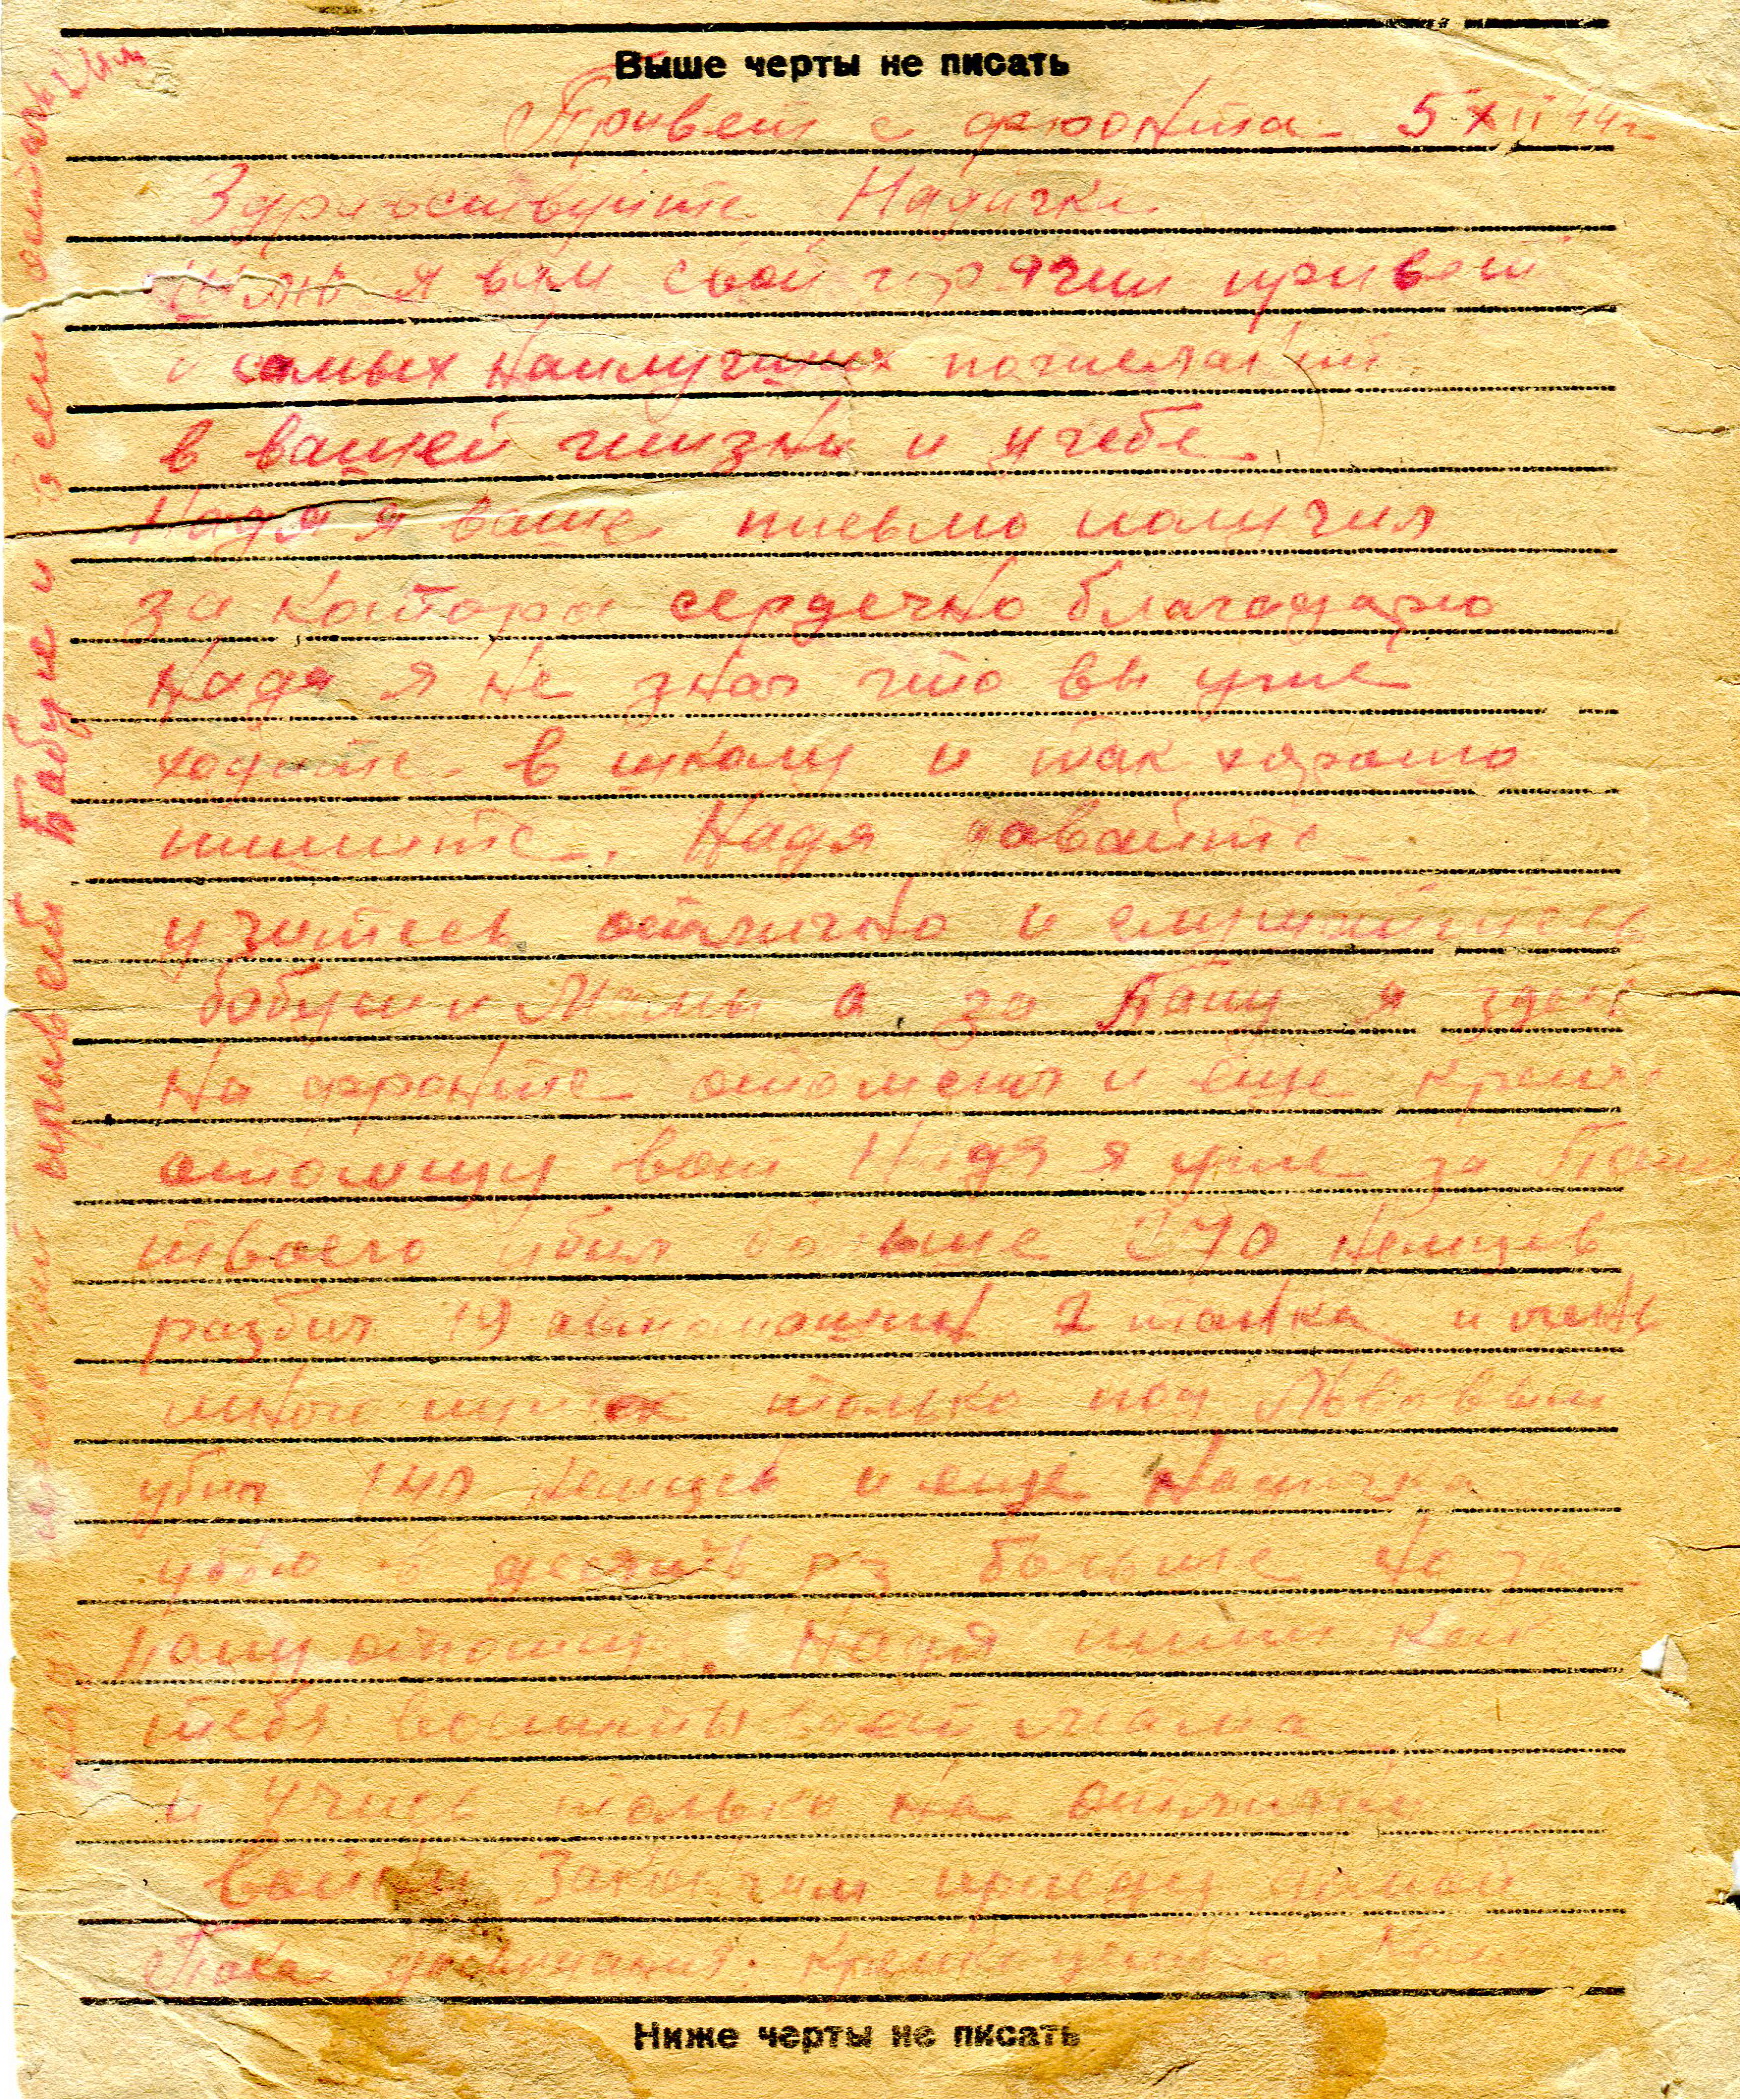 Выше черты не писать
Привет с фронта 5 XII 44г
Здравствуйте Надичка
Шлю я вам свой горячий привет
и самых наилучших пожеланий
в вашей жизни и учебе
Надя я ваше письмо получил
за каторое сердечно благадарю
Надя я не знал что вы уже
ходите в школу и так харашо
пишите. Надя давайте
учитесь отлично и слушайтесь
бабуши и Мамы а за Папу я здесь
на фронте отомстил и еще крепче
отомщу вот Надя я уже за Папу
твоего убил больше 270 немцев
разбил 19 автомашин 2 танка и очень
много пушек только под Львовым
убил немцев и еще
убью в десять раз больше но за
папу отомщу. Надя пиши как
тебя мама
и учись только на отлично
войну закончим приеду домой
Пока досвидания. Крепко целую.
Ниже черты не писать
привет Бабуше и всем остальным